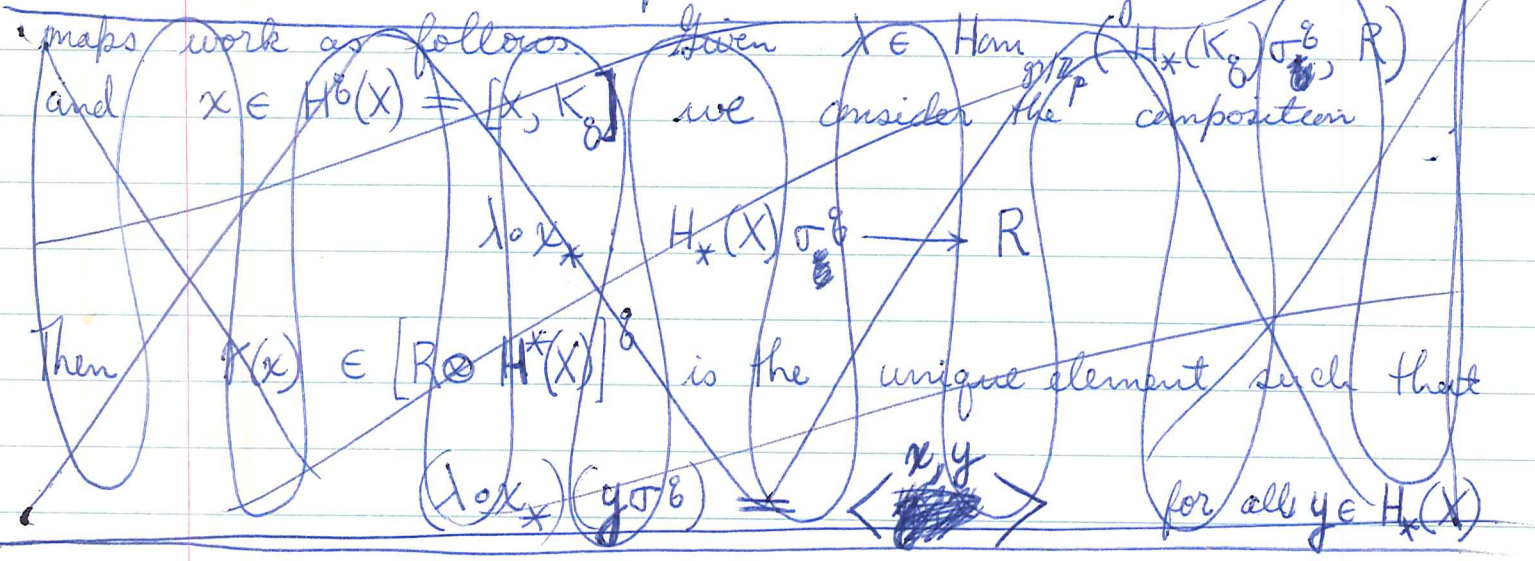 maps work as follows Given λ ∈ Hom_{gr/Z_p} (H_*(K_q)σ^q, R)
and x ∈ H^q(X) = [X, K_q] we consider the composition
λ∘x_* H_*(X)σ^q ⟶ R
Then r(x) ∈ [R⊗H^*(X)]^q is the unique element such that
(λ∘x_*)(yσ^q) = ⟨x, y⟩ for all y ∈ H_*(X)